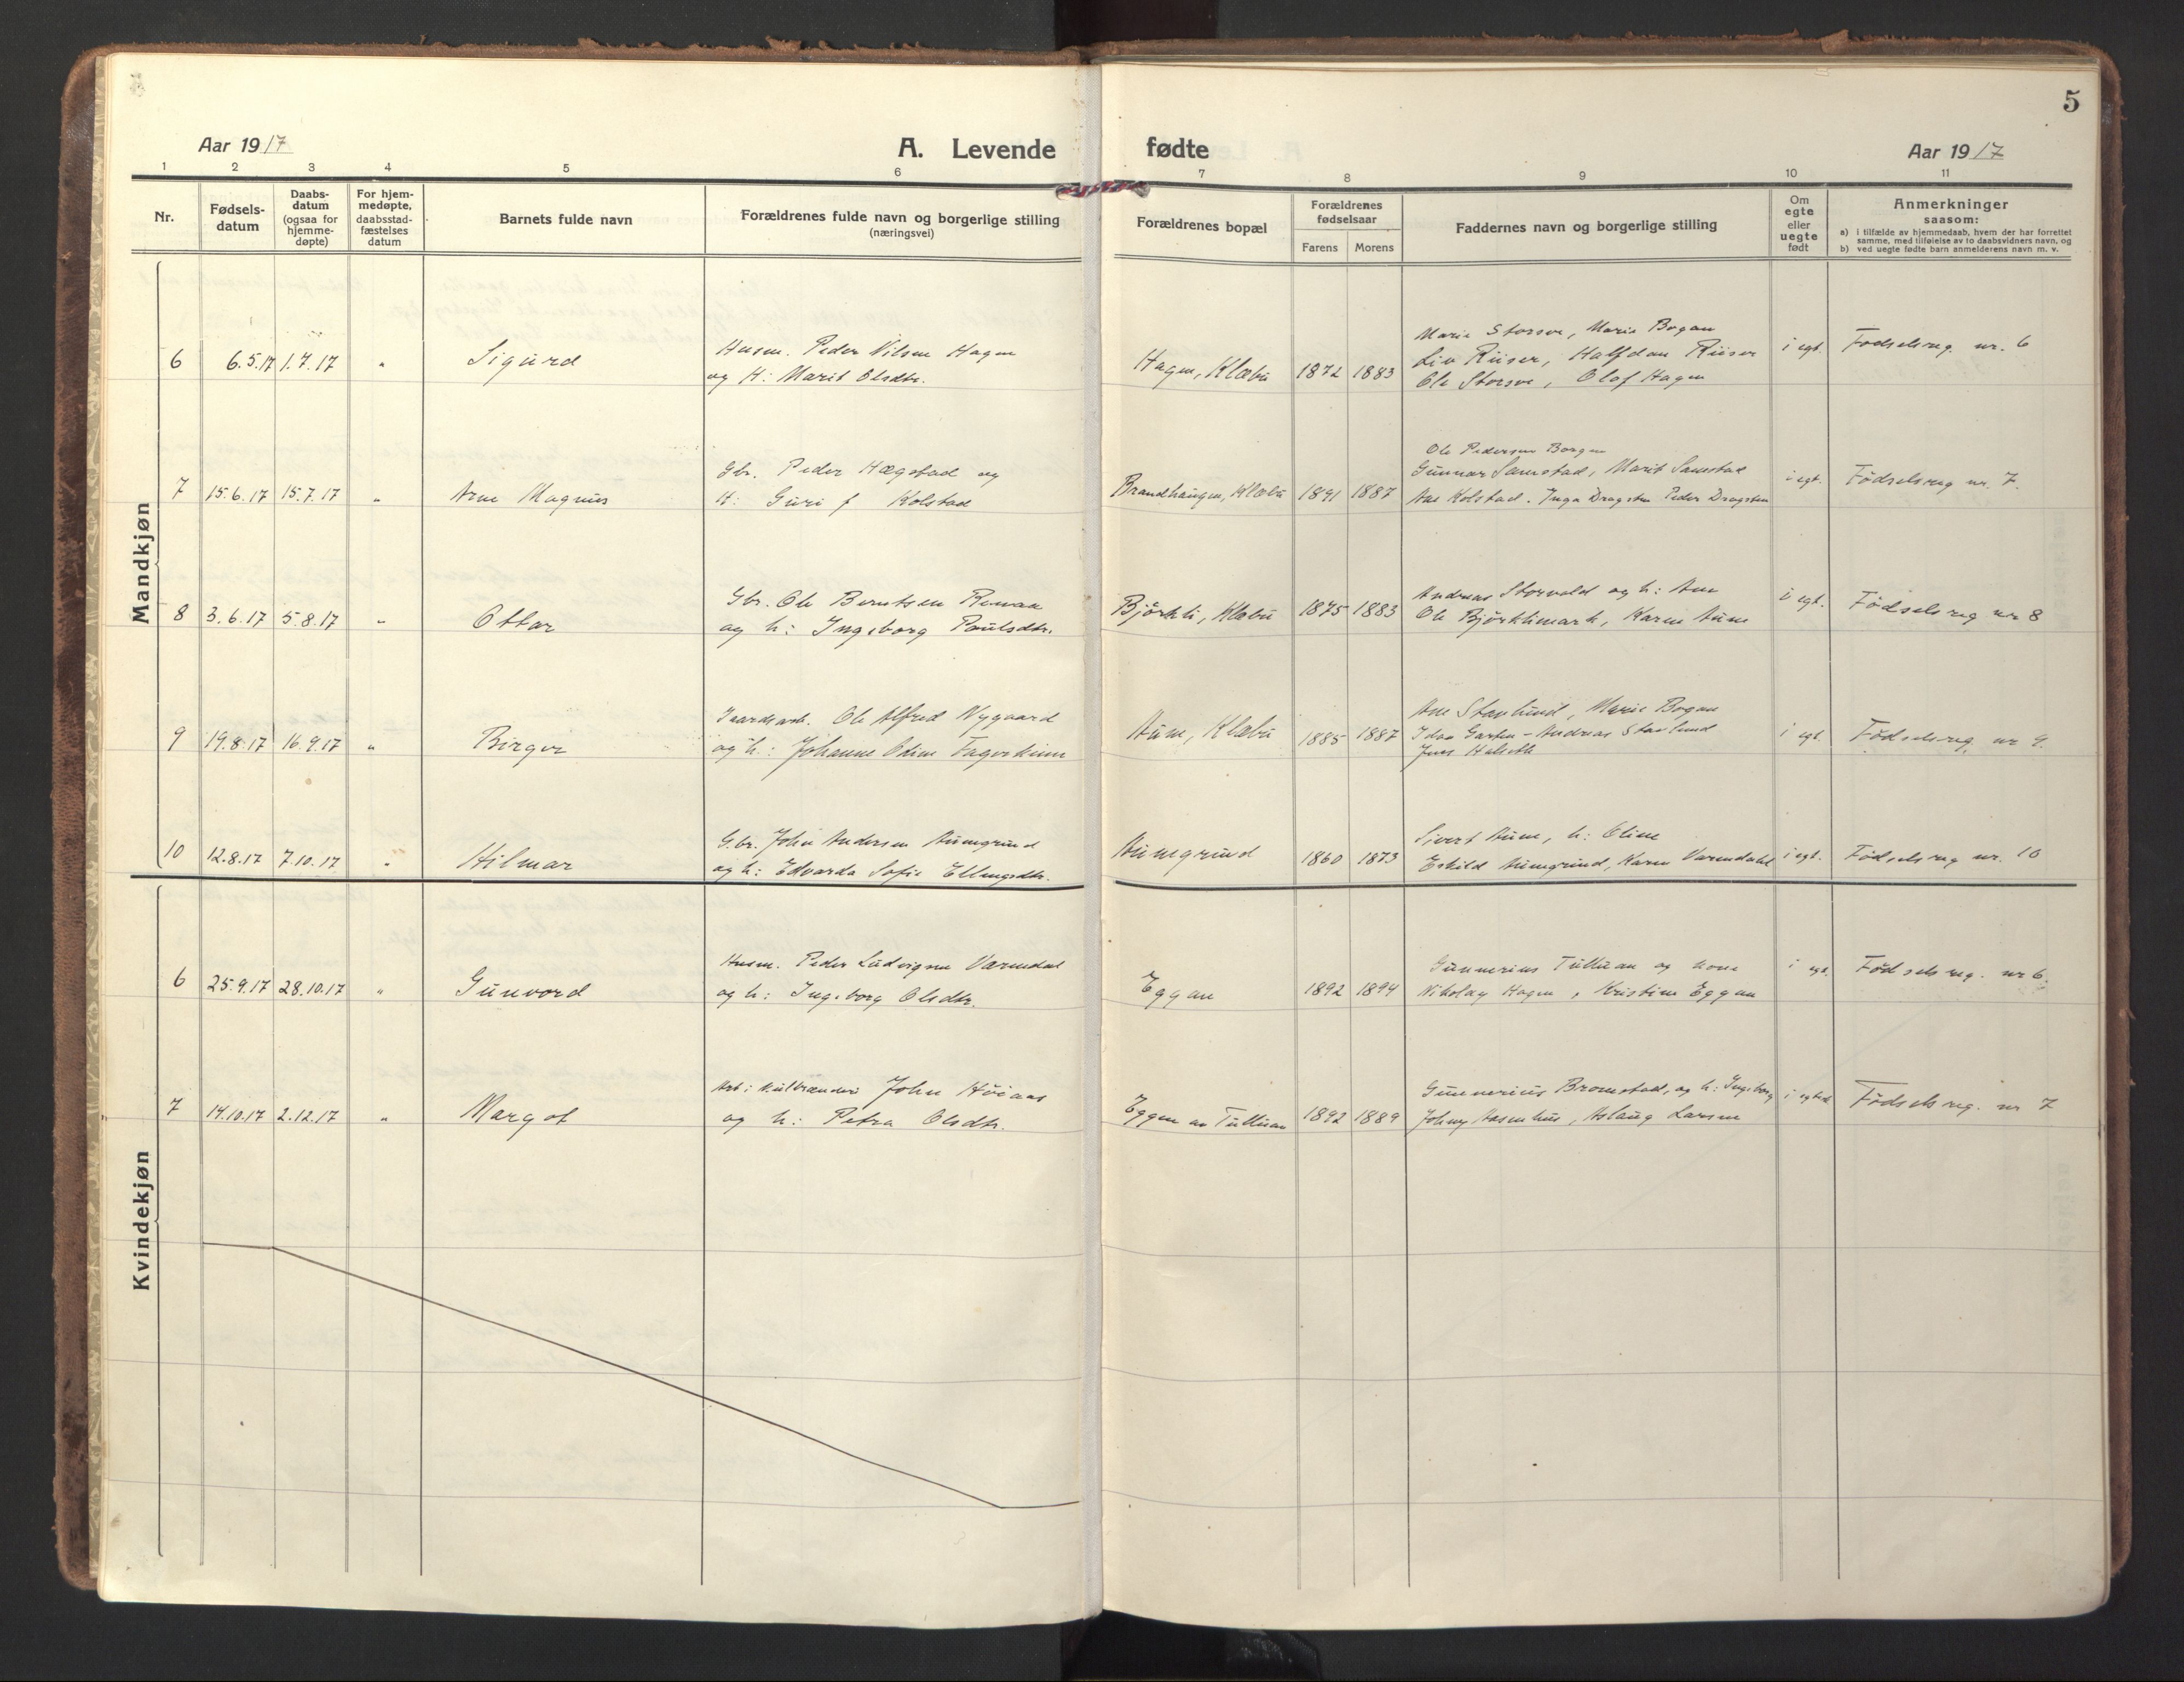 5
Aar 1917
A. Levende fødte
Aar 1917
1 2 3 4 5 6 7 8 9 10 11
Nr.
Fødsels-
datum
Daabs-
datum
(ogsaa for
hjemme-
døpte)
For hjem-
medøpte,
daabsstad-
fæstelses
datum
Barnets fulde navn
Forældrenes fulde navn og borgerlige stilling
(næringsvei)
Forældrenes bopæl
Forældrenes
fødselsaar
Farens Morens
Faddernes navn og borgerlige stilling
Om
egte
eller
uegte
født
Anmerkninger
saasom:
a) i tilfælde av hjemmedaab, hvem der har forrettet
samme, med tilføielse av to daabsvidners navn, og
b) ved uegte fødte barn anmelderens navn m. v.
Mandkjøn
6 6.5.17 1.7.17 " Sigurd
Husm. Peder Nilsen Hagen
og H: Marit Olsdtr.
Hagen, Klæbu 1872 1883
Marie Storsve, Marie Bogan
Liv Riiser, Halfdan Riiser
Ole Storsve, Olaf Hagen
i egt. Fødselsreg. nr. 6
7 15.6.17 15.7.17 " Arne Magnus
Gbr. Peder Hægstad og
H: Guri f Kolstad
Brandhaugen, Klæbu 1891 1887
Ole Pedersen Borgen
Gunnar Samstad, Marit Samstad
Ane Kolstad. Inga Dragsten Peder Dragsten
i egt. Fødselsreg nr. 7.
8 3.6.17 5.8.17 " Ottar
Gbr. Ole Berntsen
og h: Ingeborg Poulsdtr.
Björkli, Klæbu 1875 1883
Andreas Storvold og h: Ane
Ole Björklimark, Karen Aune
i egt. Fødselsreg nr 8
9 19.8.17 16.9.17 " Birger
Gaardsarb. Ole Alfred Nygaard
og h: Johanne Oline Fagerheim
Aune, Klæbu 1885 1887
Ane Stavlund, Marie Bogan
Idar Garten - Andreas Stavlund
Jens Halseth
i egt Fødselsreg. nr 9.
10 12.8.17 7.10.17 " Hilmar
G.br. John Andersen Aunegrind
og h: Edvarda Sofie Ellingsdtr.
Aunegrind 1860 1873
Sivert Aune, h: Oline
Eskild Aunegrind, Karen Varmdahl
i egt. Fødselsreg nr. 10
Kvindekjøn
6 25.9.17 28.10.17 " Gunvord
Husm. Peder Ludvigsen Varmdal
og h: Ingeborg Olsdtr.
Eggan 1892 1894
Gunnerius Tulluan og kone
Nikolay Hagen, Kristine Eggan
i egt. Fødselsreg. nr 6.
7 14.10.17 2.12.17 " Margot
Arb. i kulbrænderi John Huiaas
og h: Petra Olsdtr.
Eggen av Tulluan 1892 1889
Gunnerius Bromstad, og h: Ingeborg
Johny Aasenhus, Aslaug Larsen
i egtesk Fødselsreg. nr 7